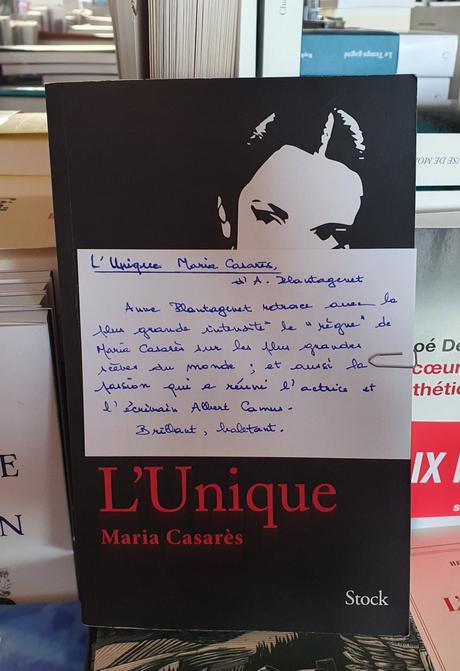 Le Temps gagné
Raph
L'Unique Maria Casarès,
d'A. Plantagenet
Anne Plantagenet retrace avec la
plus grande intensité le "règne" de
Maria Casarès sur les plus grandes
scènes du monde ; et aussi la
passion qui a réuni l'actrice et
l'écrivain Albert Camus.
Brillant, haletant.
L'Unique
Maria Casarès
Stock
oé De
cœur
thétiq
IX
E
N